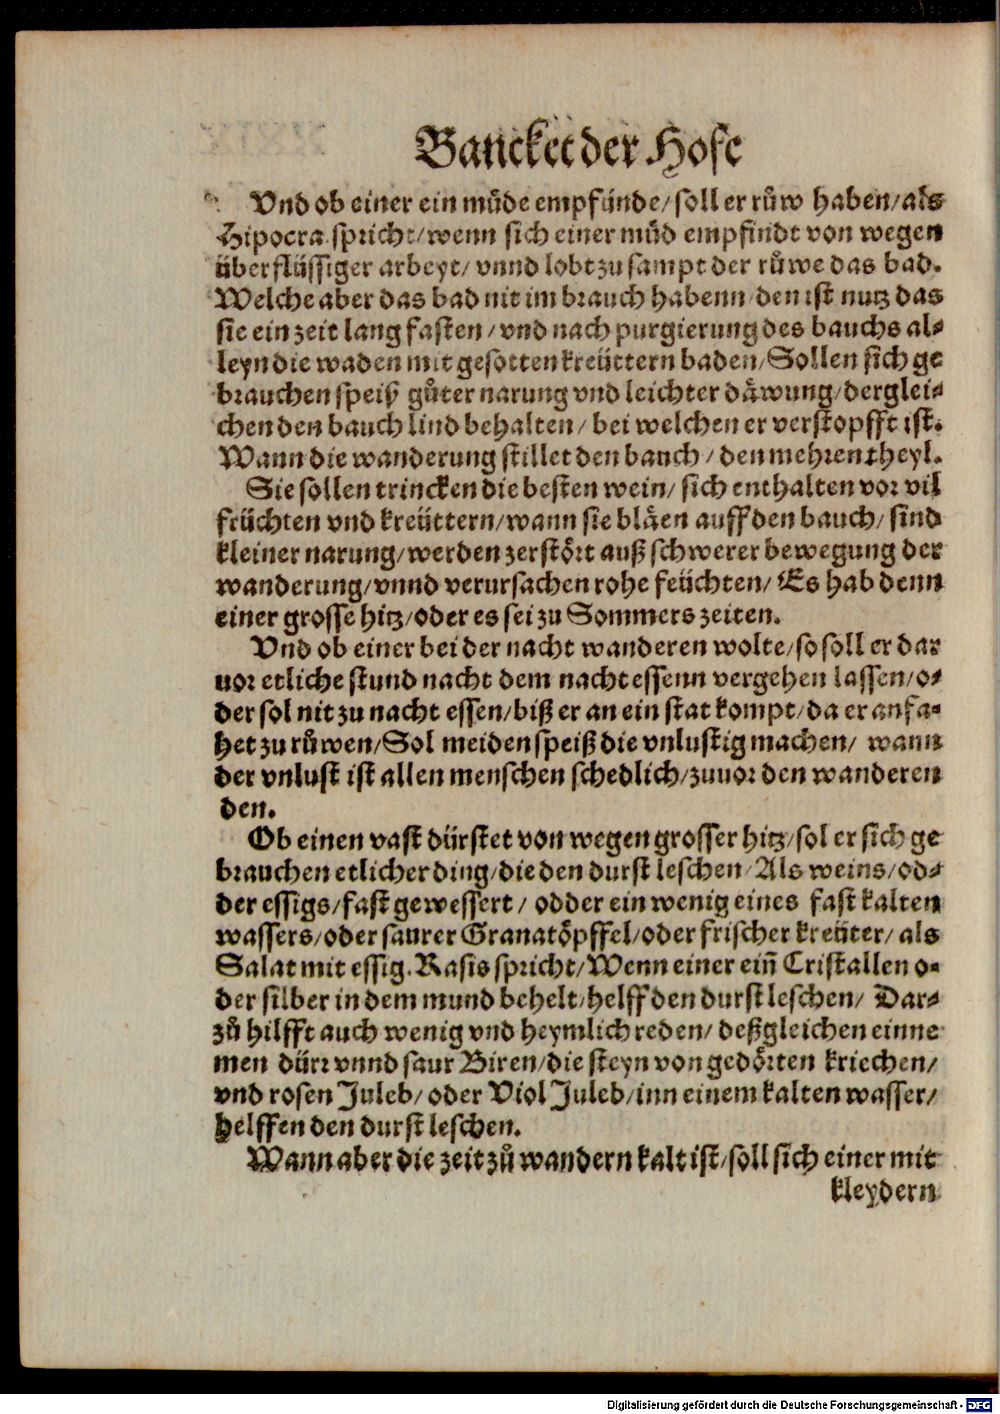 Bancket der Hofe
Vnd ob einer ein müde empfünde/ soll er růw haben/ als
Hipocra. spricht/ wenn sich einer müd empfindt von wegen
überflüssiger arbeyt/ vnnd lobt zu sampt der růwe das bad.
Welche aber das bad nit im brauch habenn/ den ist nutz das
sie ein zeit lang fasten/ vnd nach purgierung des bauchs al⸗
leyn die waden mit gesotten kreüttern baden/ Sollen sich ge
brauchen speiß gůter narung vnd leichter däwung/ derglei⸗
chen den bauch lind behalten/ bei welchen er verstopfft ist.
Wann die wanderung stillet den bauch/ den mehren theyl.
Sie sollen trincken die besten wein/ sich enthalten vor vil
früchten vnd kreüttern/ wann sie bläen auff den bauch/ sind
kleiner narung/ werden zerstört auß schwerer bewegung der
wanderung/ vnnd verursachen rohe feüchten/ Es hab denn
einer grosse hitz/ oder es sei zu Sommers zeiten.
Vnd ob einer bei der nacht wanderen wolte/ so soll er dar
uor etliche stund nacht dem nacht essenn vergehen lassen/ o⸗
der sol nit zu nacht essen/ biß er an ein stat kompt/ da er anfa⸗
het zu růwen/ Sol meiden speiß die vnlustig machen/ wann
der vnlust ist allen menschen schedlich/ zuuor den wanderen
den.
Ob einen vast dürstet von wegen grosser hitz/ sol er sich ge
brauchen etlicher ding/ die den durst leschen/ Als weins/ od⸗
der essigs/ fast gewessert/ odder ein wenig eines fast kalten
wassers/ oder saurer Granatöpffel/ oder frischer kreüter/ als
Salat mit essig. Rasis spricht/ Wenn einer ein̄ Cristallen o⸗
der silber in dem mund behelt/ helff den durst leschen/ Dar⸗
zů hilfft auch wenig vnd heymlich reden/ deßgleichen einne
men dürr vnnd saur Biren/ die steyn von gedörten kriechen/
vnd rosen Juleb/ oder Viol Juleb/ inn einem kalten wasser/
helffen den durst leschen.
Wann aber die zeit zů wandern kalt ist/ soll sich einer mit
kleydern
Digitalisierung gefördert durch die Deutsche Forschungsgemeinschaft - DFG